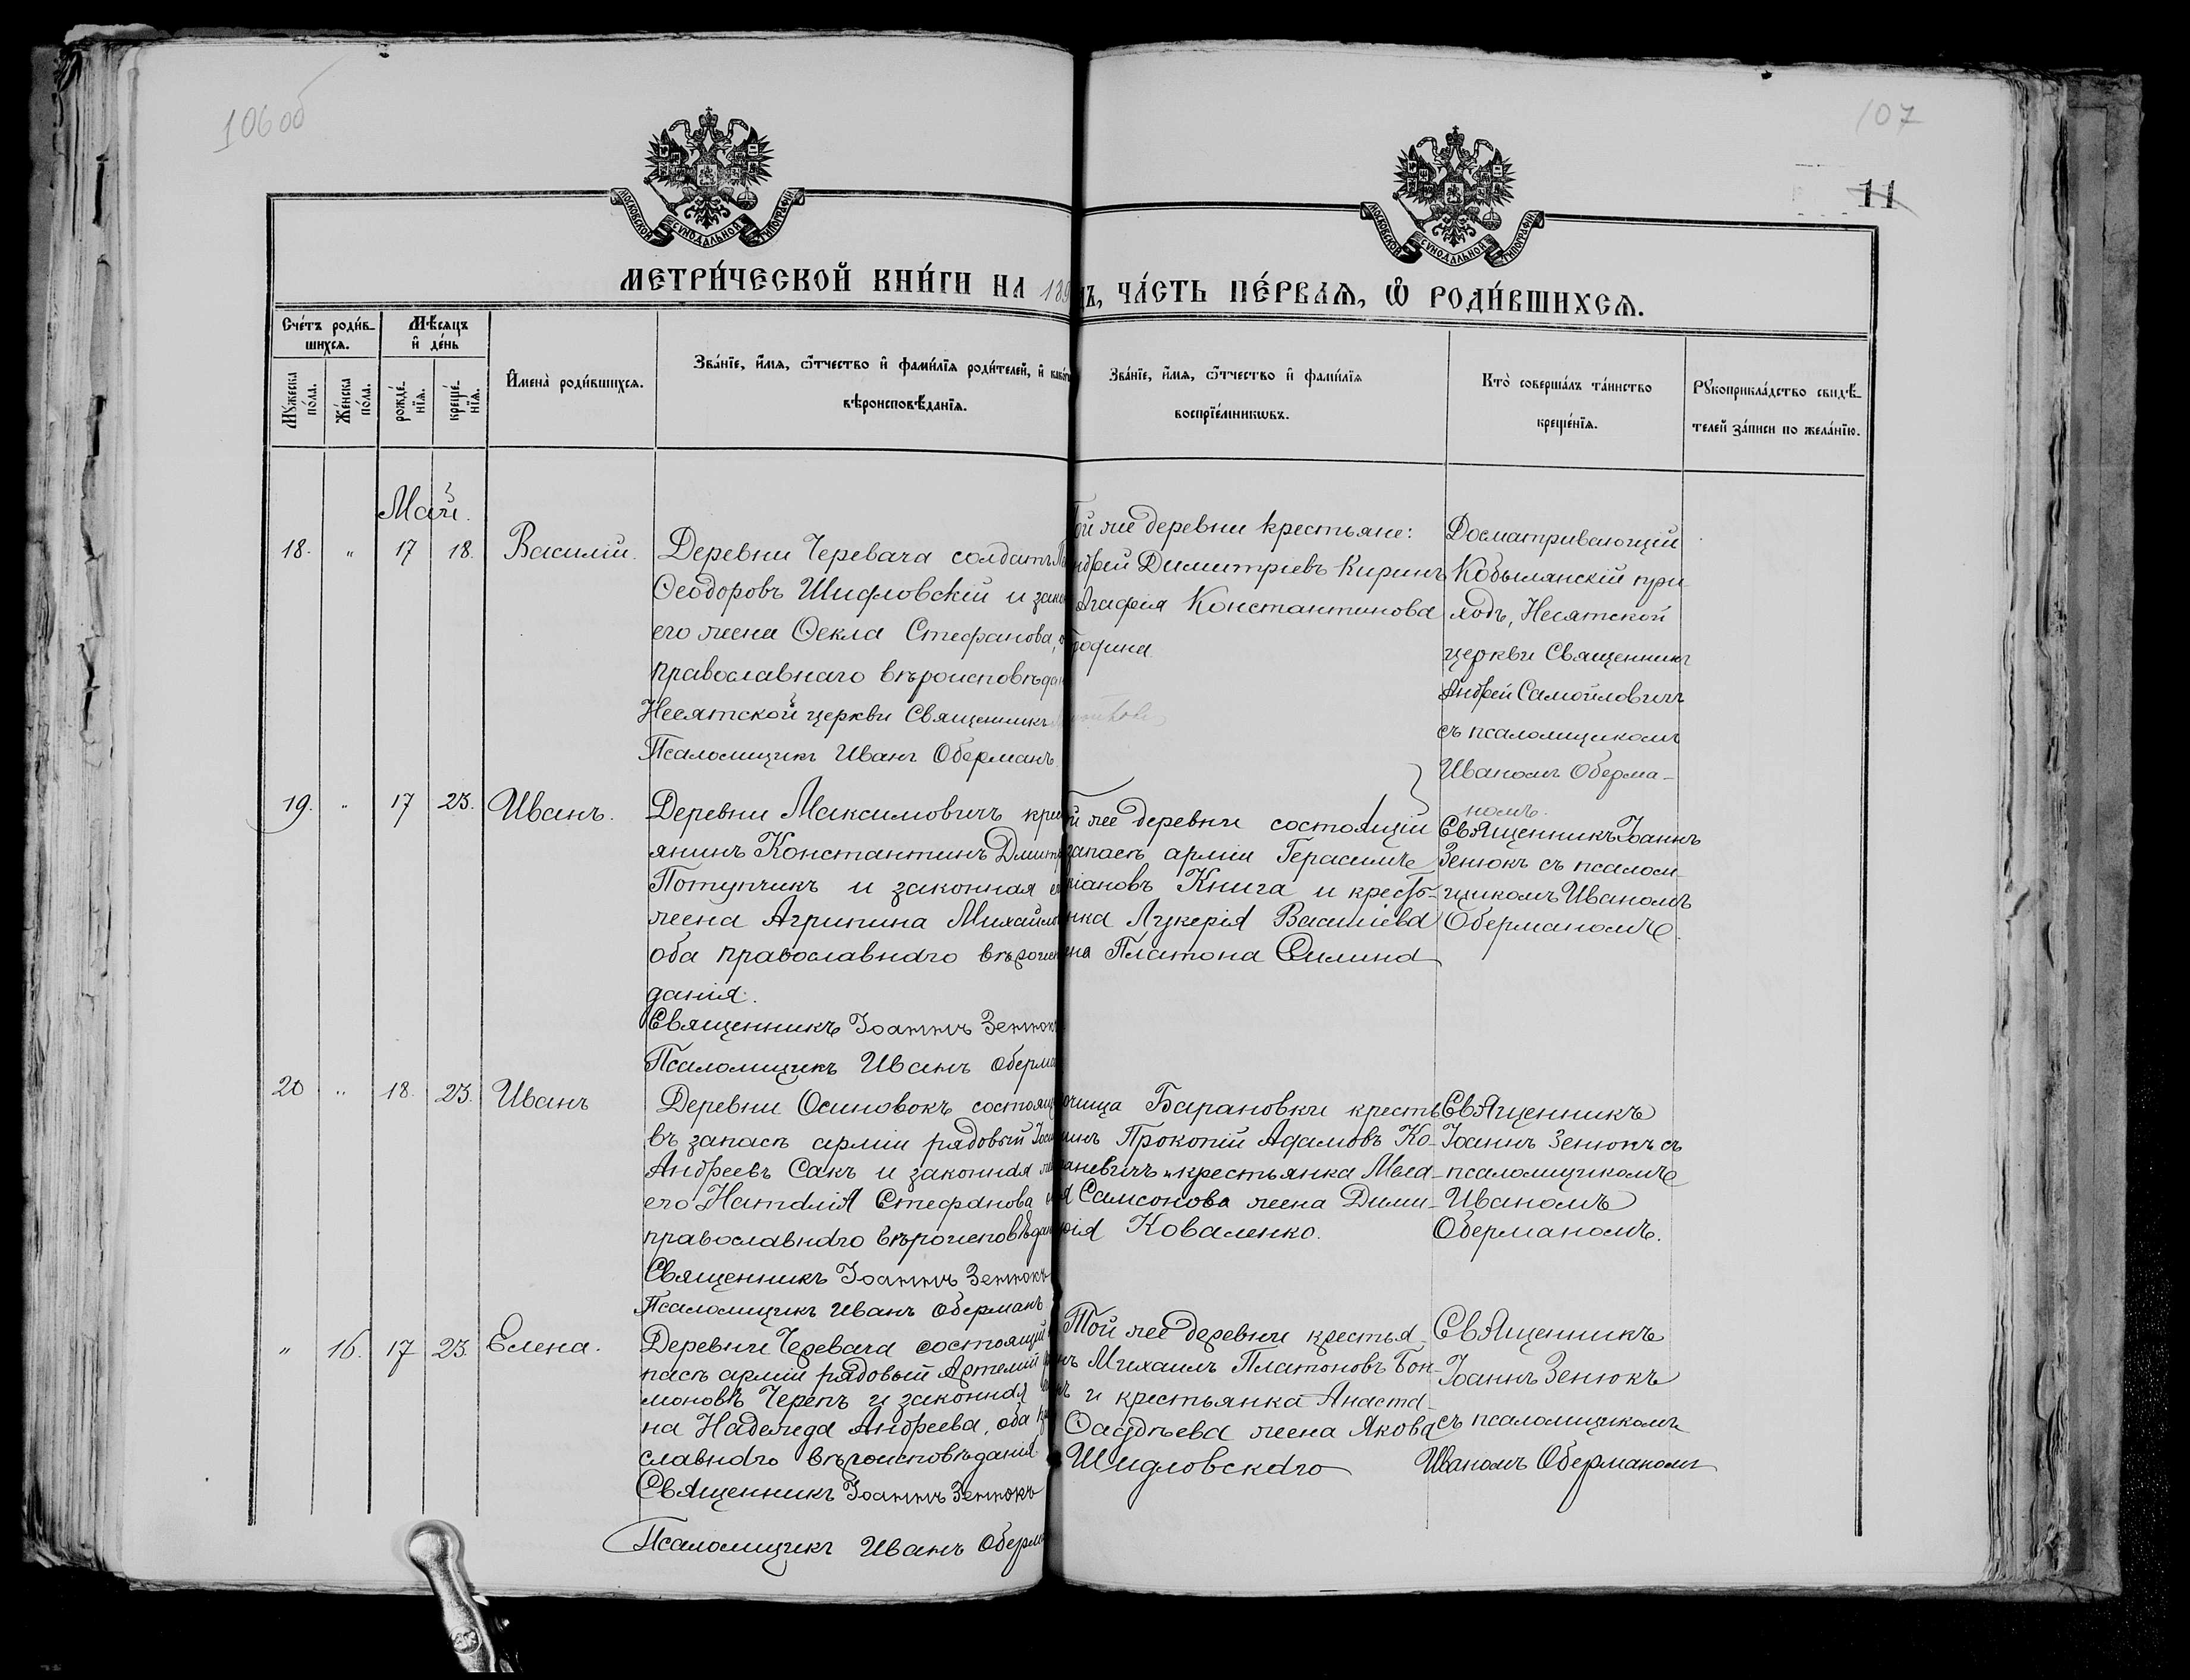 106 об
107
11
МОСКОВСКОЙ СѴНОДАЛЬНОЙ ТИПОГРАФІИ
МОСКОВСКОЙ СѴНОДАЛЬНОЙ ТИПОГРАФІИ
МЕТРИ́ЧЕСКОЙ КНИ́ГИ НА 189
ЧА́СТЬ ПЕ́РВАѦ, Ѡ РОДИ́ВШИХСѦ.
Сче́тъ роди́в-
шихсѧ.
Мѣ́сѧцъ
и҆ де́нь
Мꙋ́жеска по́ла.
Же́нска по́ла.
рожде́-
нїѧ.
креще́-
нїѧ.
И҆мена̀ роди́вшихсѧ.
Зва́нїе, и҆́мѧ, ѻ҆́тчество и҆ фами́лїѧ роди́телей, и҆
вѣроисповѣ́данїѧ.
Зва́нїе, и҆́мѧ, ѻ҆́тчество и҆ фами́лїѧ
воспрїе́мникѡвъ.
Кто̀ соверша́лъ та́инство
креще́нїѧ.
Рꙋкоприкла́дство свидѣ́-
телей за́писи по жела́нїю.
Май.
18. " 17 18. Василій.
Деревни Черевача солдатъ
Ѳеодоровъ Шидловскій и зако
его жена Ѳекла Стефанова,
православнаго вѣроисповѣдан
Несятской церкви Священникъ
Псаломщикъ Иванъ Оберманъ.
той же деревни крестьяне:
Андрей Димитріевъ Киринъ
Агафія Константинова
Трофина.
Досматривающій
Кобылянскій при
ходъ, Несятской
церкви Священникъ
Андрей Самойловичъ
съ псаломщикомъ
Иваномъ Оберма-
номъ.
19. " 17 23. Иванъ.
Деревни Максимовичъ крест
янинъ Константинъ Дмит
Потупчикъ и законная его
жена Агрипина Михайло
оба православнаго вѣроис
данія.
Священникъ Іоаннъ Зенюкъ
Псаломщикъ Иванъ Оберма
той же деревни состоящій
запасѣ арміи Герасимъ
ріановъ Книга и крестья-
нка Лукерія Василіева
ена Платона Силина
Священникъ Іоаннъ
Зенюкъ съ псалом-
щикомъ Иваномъ
Оберманомъ.
20 " 18. 23. Иванъ
Деревни Осиновокъ состоящ
въ запасѣ арміи рядовый
Андреевъ Сакъ и законная
его Наталія Стефанова
православнаго вѣроисповѣдан
Священникъ Іоаннъ Зенюкъ
Псаломщикъ Иванъ Оберманъ
Барановки кресть
нинъ Прокопій Адамовъ Ко-
аневичъ и крестьянка Мела-
ія Самсонова жена Дими-
рія Коваленко.
Священникъ
Іоаннъ Зенюкъ съ
псаломщикомъ
Иваномъ
Оберманомъ.
" 16. 17 23 Елена.
Деревни Черевача состоящій
пасѣ арміи рядовый Артемій
моновъ Черепъ и законная
на Надежда Андреева, оба
славнаго вѣроисповѣданія
Священникъ Іоаннъ Зенюкъ
Псаломщикъ Иванъ Оберма
Той же деревни крестья-
нъ Михаилъ Платоновъ Бон-
и крестьянка Анаста-
Ѳаддѣева жена Якова
Шидловскаго
Священникъ
Іоаннъ Зенюкъ
съ псаломщикомъ
Иваномъ Оберманомъ